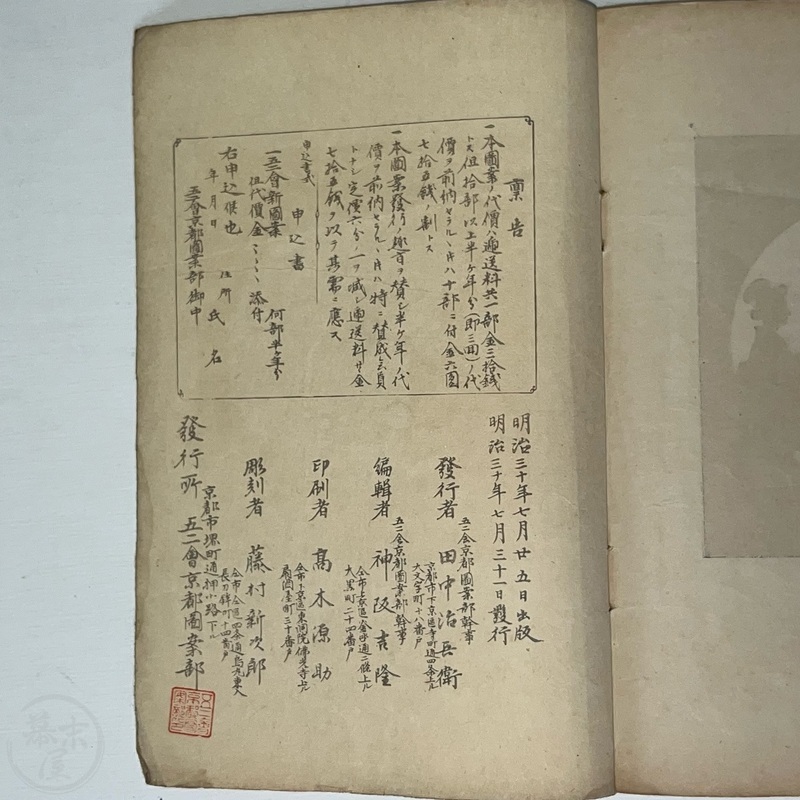 稟告
一本圖案ノ代價ハ遞送料共一部金三拾錢
トス但拾部以上半ケ年分(即三回)ノ代
價ヲ前納セラルヽ片ハ十部ニ付金六圓
七拾五錢ノ割トス
一本圖案發行ノ趣旨ヲ賛シ半ケ年ノ代
價ヲ前納セラルヽ片ハ特ニ賛成會員
トナシ定價六分ノ一ヲ減シ逓送料廿金
七拾五錢ヲ以テ其需ニ應ス
申込書式
申込書
一五二會新圖案 何部半ケ年分
但代價金〻〻〻〻 添付
右申込候也
年月日 住所氏名
五二會京都圖案部御中
明治三十年七月廿五日出版
明治三十年七月三十一日發行
五二會京都圖案部幹事
發行者 田中治兵衛
京都市下京區寺町通四条上ル
大文字町十八番戸
五二會京都圖案部幹事
編輯者 神阪吉隆
仝市上京區釜座通二條上ル
大黒町二十四番戸
印刷者 高木源助
仝市下京區東洞院佛光寺上ル
扇酒屋町三十番戸
彫刻者 藤村新次郎
仝市仝區四条通烏丸東入
長刀鉾町十四番戸
京都市堺町通押小路下ル
發行所 五二會京都圖案部
幕末屋